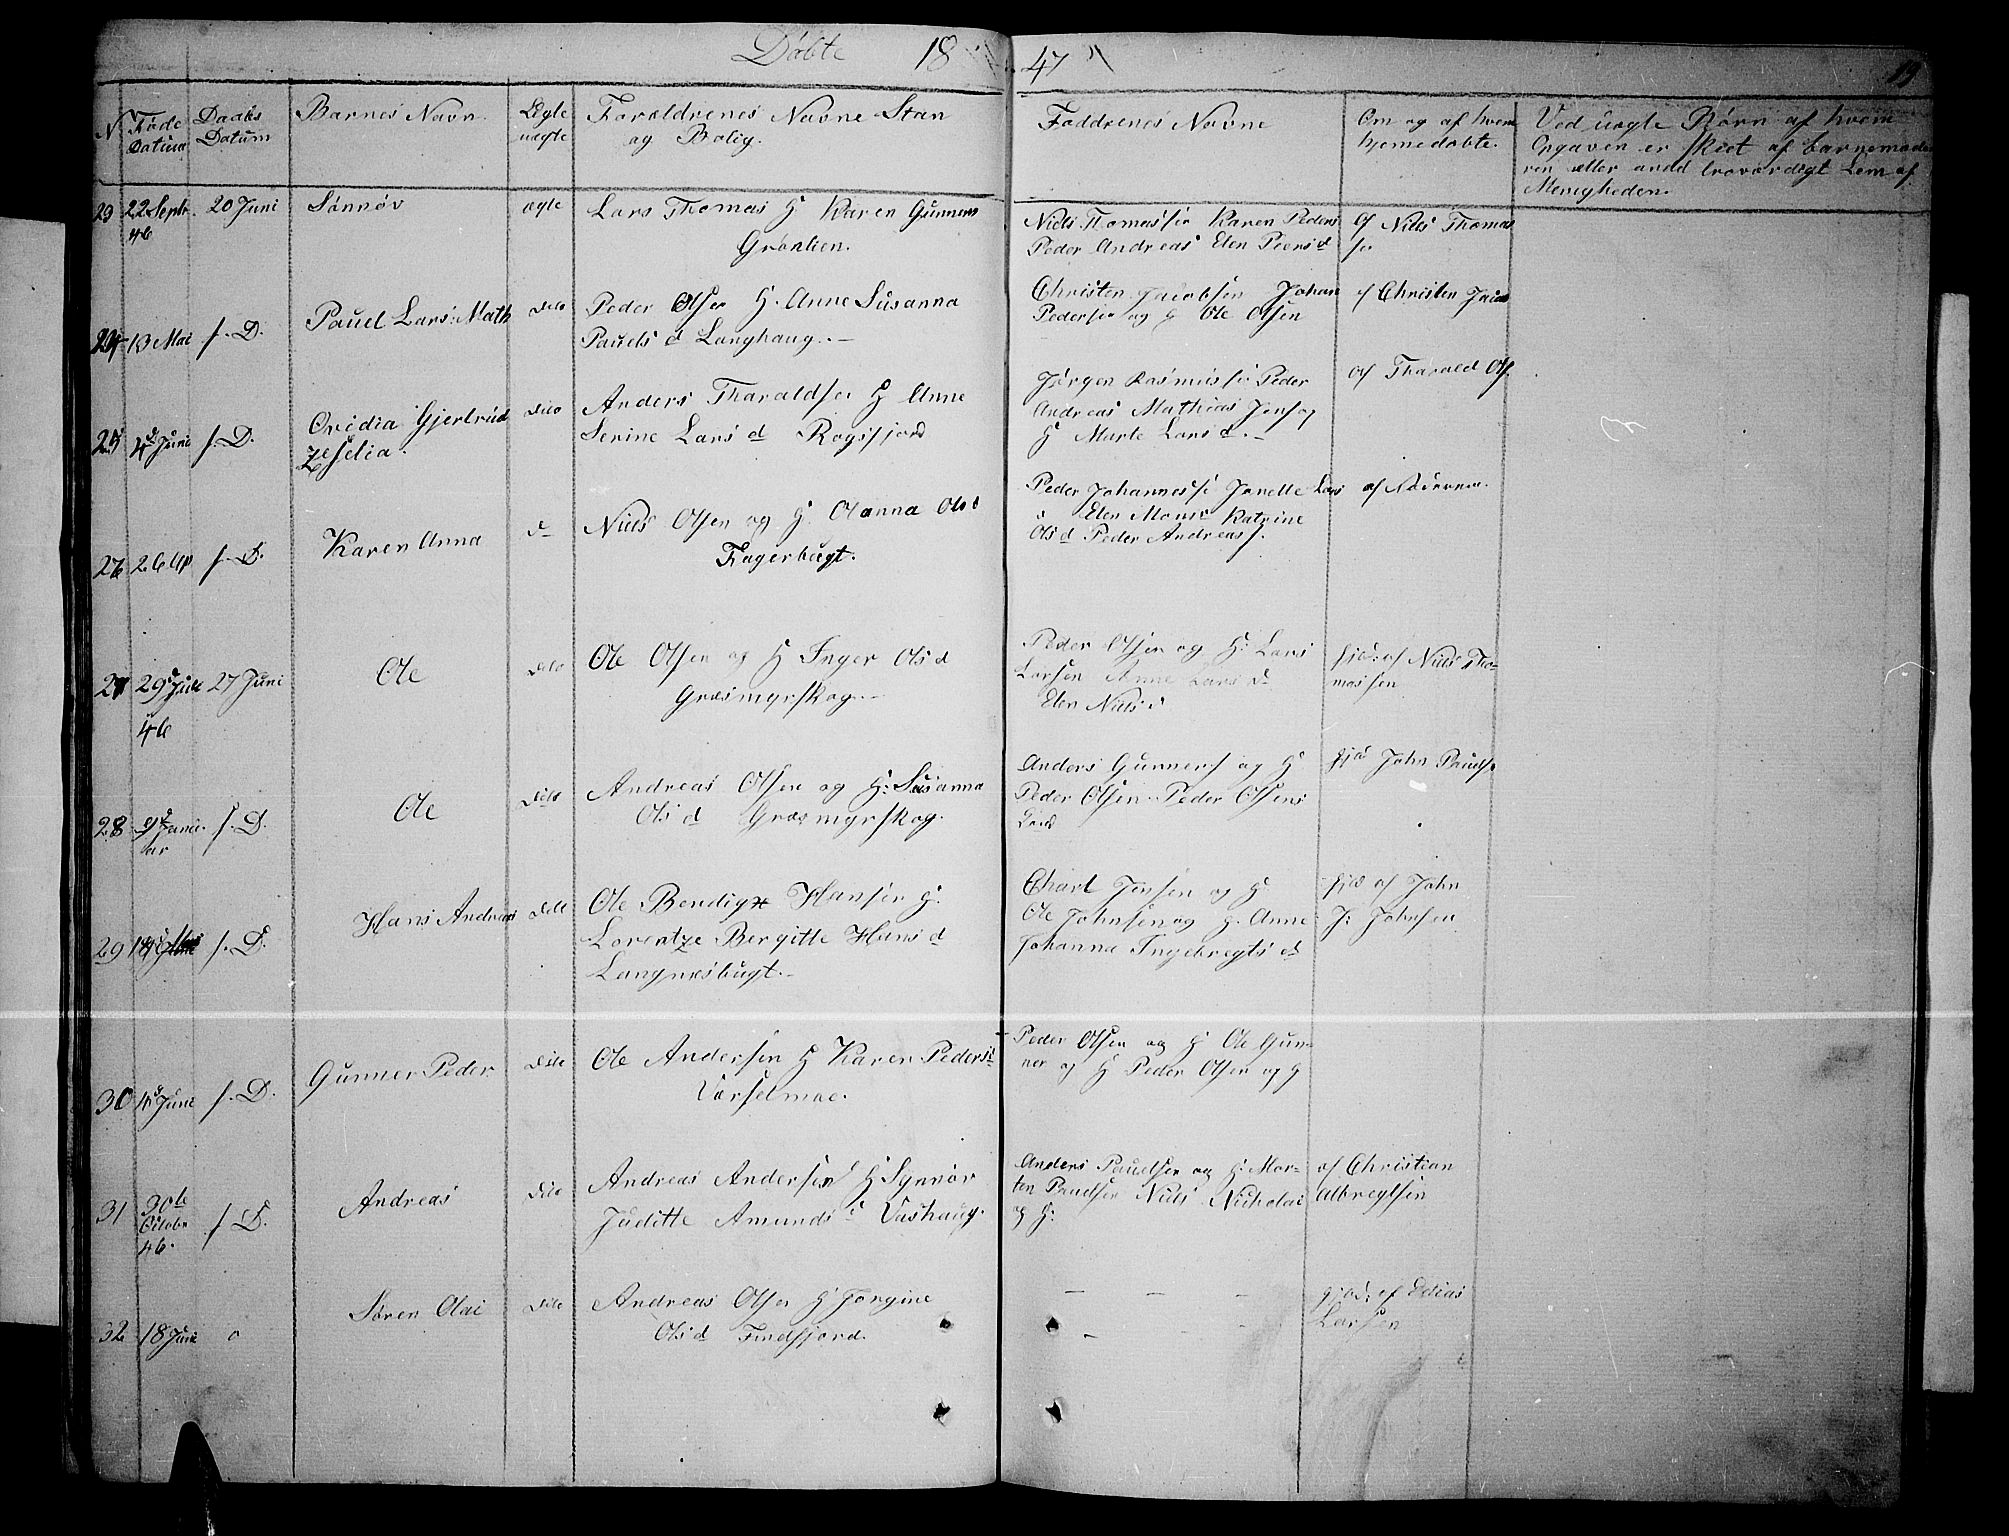 Döbte 1847
19
N. Föde Datum
Daabs Datum
Barnes Navn.
Ægte uægte
Foræld­renes Navne Stan
og Bolig.
Faddrenes Navne
Om og af hvem
hjemedöbte.
Ved uægte Börn af hvem
Opgaven er skeet af barnemode
ren eller andd troværdigt Lem af
Menigheden.
23 22 Septr. 46 20 Juni Sönnöv ægte
Lars Thomas H Karen Gunners
Grönlien.
Niels Thomasse Karen Peders
Peder Andreas Elen Peers d
af Niels Thomas
se
24 13 Mai s. D. Paul Lars: Math dito
Peder Olsen H. Anne Susanna
Pauels d Langhaug. -
Christen Jacobsen Johan
Pederse og H Ole Olsen
af Christen Jacob
25 4d Juni s. D. Ovidia Gjertrud
Zeselia. dito
Anders Tharaldse H Anne
Serine Lars d Rogsfjord
Jörgen Rasmusse Peder
Andreas Mathias Jens og
H Marte Lars d. -
af Tharald Ols.
26 26 Ap s. D. Karen Anna d-
Niels Olsen og H. Olanna Ols d
Fagerbugt.
Peder Johannesse Jenette Lars
d Elen Mons Katrine
Ols d Peder Andreas s.
af Faderen.
27 29d Juli 46 27 Juni Ole dito
Ole Olsen og H Inger Ols d
Græsmyrskog. -
Peder Olsen og H: Lars
Larsen Anne Lars d
Elen Niels d
hjd: af Niels Tho-
massen
28 9d Janu­ar s. D. Ole dito
Andreas Olsen og H: Susanna
Ols d Græsmyrskog.
Anders Gunners og H
Peder Olsen Peder Olsens
hjd John Pauels
29 s. D. Hans Andreas dito
Ole Bendigx Hansen H.
Lorentze Bergitte Hans d
Langnesbugt. -
Charl Jensen og H.
Ole Johnsen og H. Anne
Johanna Ingebregts d
hjd af John
J: Johnsen
30 4d Juni s. D. Gunner Peder dito
Ole Andersen H Karen Peders d
Varselmoe.
Peder Olsen og H Ole Gun-
ner og H Peder Olsen og H
31 30te Octobr 46. s D. Andreas dito
Andreas Andersen H Synnöv
Juditte Amunds d Vashaug.
Anders Pauelsen og H: Mor-
ten Pauelsen Niels Nicholai
og H:
af Christian
Albregtsen
32 18 Juni o Sören Olai dito
Andreas Olsen H Jorgine
Ols d Findfjord.
- - -
- - -
hjed: af Edias
Larsen